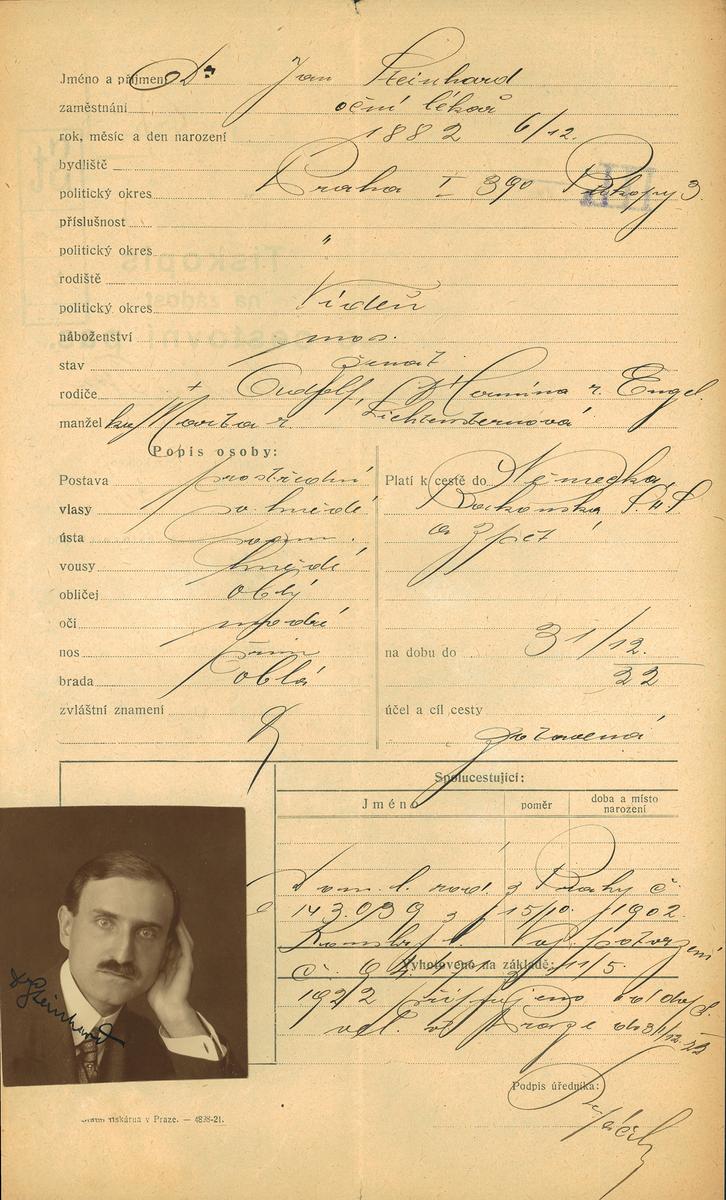 Jméno a příjmení Dr. Jan Steinhard
zaměstnání oční lékař
rok, měsíc a den narození 1882 6/12.
bydliště
politický okres Praha I 390 Příkopy 3.
příslušnost
politický okres "
rodiště
politický okres Vídeň
náboženství mos.
stav ženat
rodiče + Rudolf, Hermína r. Engel
manžel ka Marta r. Lichtensternová
Popis osoby:
Postava prostřední
vlasy hnědé
ústa
vousy hnědé
obličej oblý
oči modré
nos
brada oblá
zvláštní znamení
Platí k cestě do Německa,
Rakouska, S.H.S.
a zpět
na dobu do 31/12.
22
účel a cíl cesty
Spolucestující:
Jméno poměr doba a místo narození
Dom. l. rad. z Prahy č.
143.039 z 15/10. 1902.
potvrzení
Vyhotoveno na základě:
č. 11/5.
1922
vel. v Praze do 31/12. 22
Dr Steinhard
Podpis úředníka:
Státní tiskárna v Praze. — 4838-21.